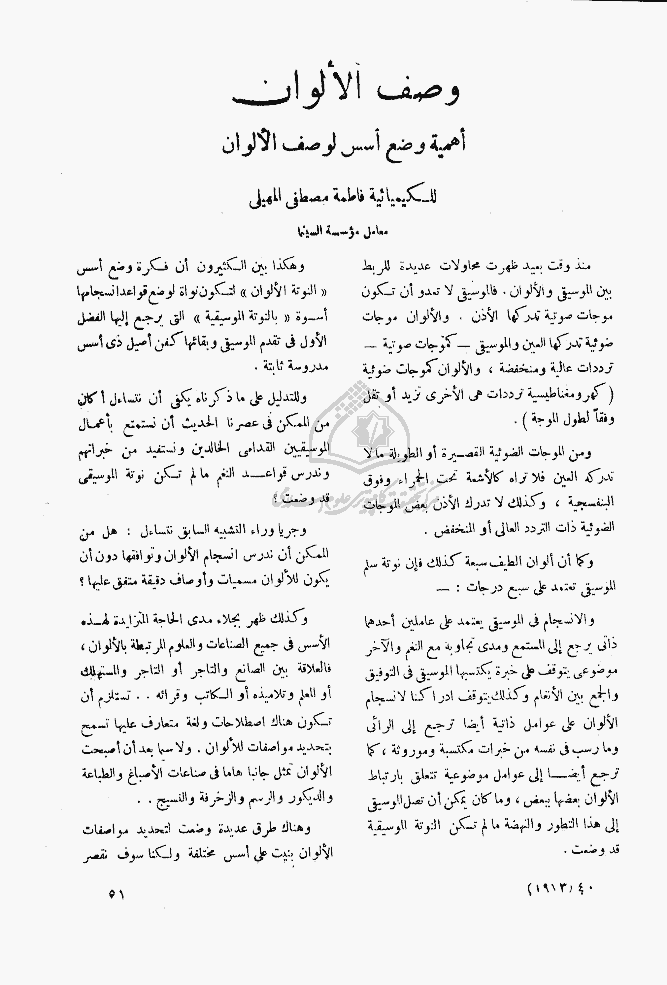 وصف الألوان
أهمية وضع أسس لوصف الألوان
للكيميائية فاطمة مصطفى المهيلى
معامل مؤسسة السينما
منذ وقت بعيد ظهرت محاولات عديدة للربط
بين الموسيقى والألوان . فالموسيقى لا تعدو أن تكون
موجات صوتية تدركها الأذن . والألوان موجات
ضوئية تدركها العين والموسيقى — كموجات صوتية —
ترددات عالية ومنخفضة ، والألوان كموجات ضوئية
( كهرومغناطيسية ترددات هى الأخرى تزيد أو تقل
وفقاً لطول الموجة ) .
ومن الموجات الضوئية القصيرة أو الطويلة مالا
تدركه العين فلا تراه كالأشعة تحت الحمراء وفوق
البنفسجية ، وكذلك لا تدرك الأذن بعض الموجات
الضوئية ذات التردد العالى أو المنخفض .
وكما أن ألوان الطيف سبعة كذلك فإن نوتة سلم
الموسيقى تعتمد على سبع درجات : —
والانسجام فى الموسيقى يعتمد على عاملين أحدهما
ذاتى يرجع إلى المستمع ومدى تجاوبه مع النغم والآخر
موضوعى يتوقف على خبرة يكتسبها الموسيقى فى التوفيق
والجمع بين الأنغام وكذلك يتوقف ادراكنا لانسجام
الألوان على عوامل ذاتية أيضا ترجع إلى الرائى
وما رسب فى نفسه من خبرات مكتسبة وموروثة ، كما
ترجع أيضا إلى عوامل موضوعية تتعلق بارتباط
الألوان بعضها ببعض ، وما كان يمكن أن تصل الموسيقى
إلى هذا التطور والنهضة ما لم تكن النوتة الموسيقية
قد وضعت .
وهكذا بين الكثيرون أن فكرة وضع أسس
« النوتة الألوان » لتكون نواة لوضع قواعد انسجامها
أسوة « بالنوتة الموسيقية » التى يرجع إليها الفضل
الأول فى تقدم الموسيقى وبقائها كفن أصيل ذى أسس
مدروسة ثابتة .
وللتدليل على ما ذكرناه يكفى أن نتساءل أكان
من الممكن فى عصرنا الحديث أن نستمتع بأعمال
الموسيقيين القدامى الخالدين ونستفيد من خبراتهم
وندرس قواعد النغم ما لم تكن نوتة الموسيقى
قد وضعت ؟
وجريا وراء التشبيه السابق نتساءل : هل من
الممكن أن ندرس انسجام الألوان وتوافقها دون أن
يكون للألوان مسميات وأوصاف دقيقة متفق عليها ؟
وكذلك ظهر بجلاء مدى الحاجة المتزايدة لهذه
الأسس فى جميع الصناعات والعلوم المرتبطة بالألوان ،
فالعلاقة بين الصانع والتاجر أو التاجر والمستهلك
أو المعلم وتلاميذه أو الكاتب وقرائه . . تستلزم أن
تكون هناك اصطلاحات ولغة متعارف عليها تسمح
بتحديد مواصفات للألوان . ولا سيما بعد أن أصبحت
الألوان تمثل جانبا هاما فى صناعات الأصباغ والطباعة
والديكور والرسم والزخرفة والنسيج . .
وهناك طرق عديدة وضعت لتحديد مواصفات
الألوان بنيت على أسس مختلفة ولكنا سوف نقصر
٥١